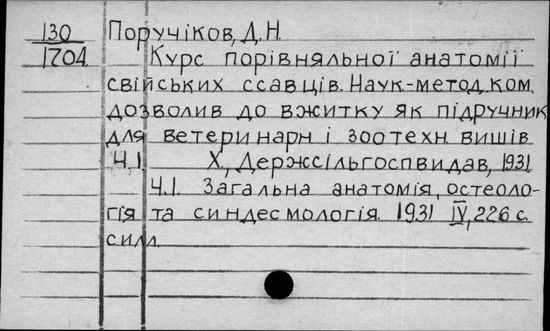 130 Поручіков, Д.Н.
1704 Курс порівняльної анатомії
свійських ссавців. Наук.-метод. ком.
дозволив до вжитку як підручник
для ветеринарн і зоотехн. вишів.
Ч.1. Х, Держсільгоспвидав, 1931
Ч.1. Загальна анатомія, остеоло-
гія та синдесмологія. 1931 IV, 226 с.
силл.